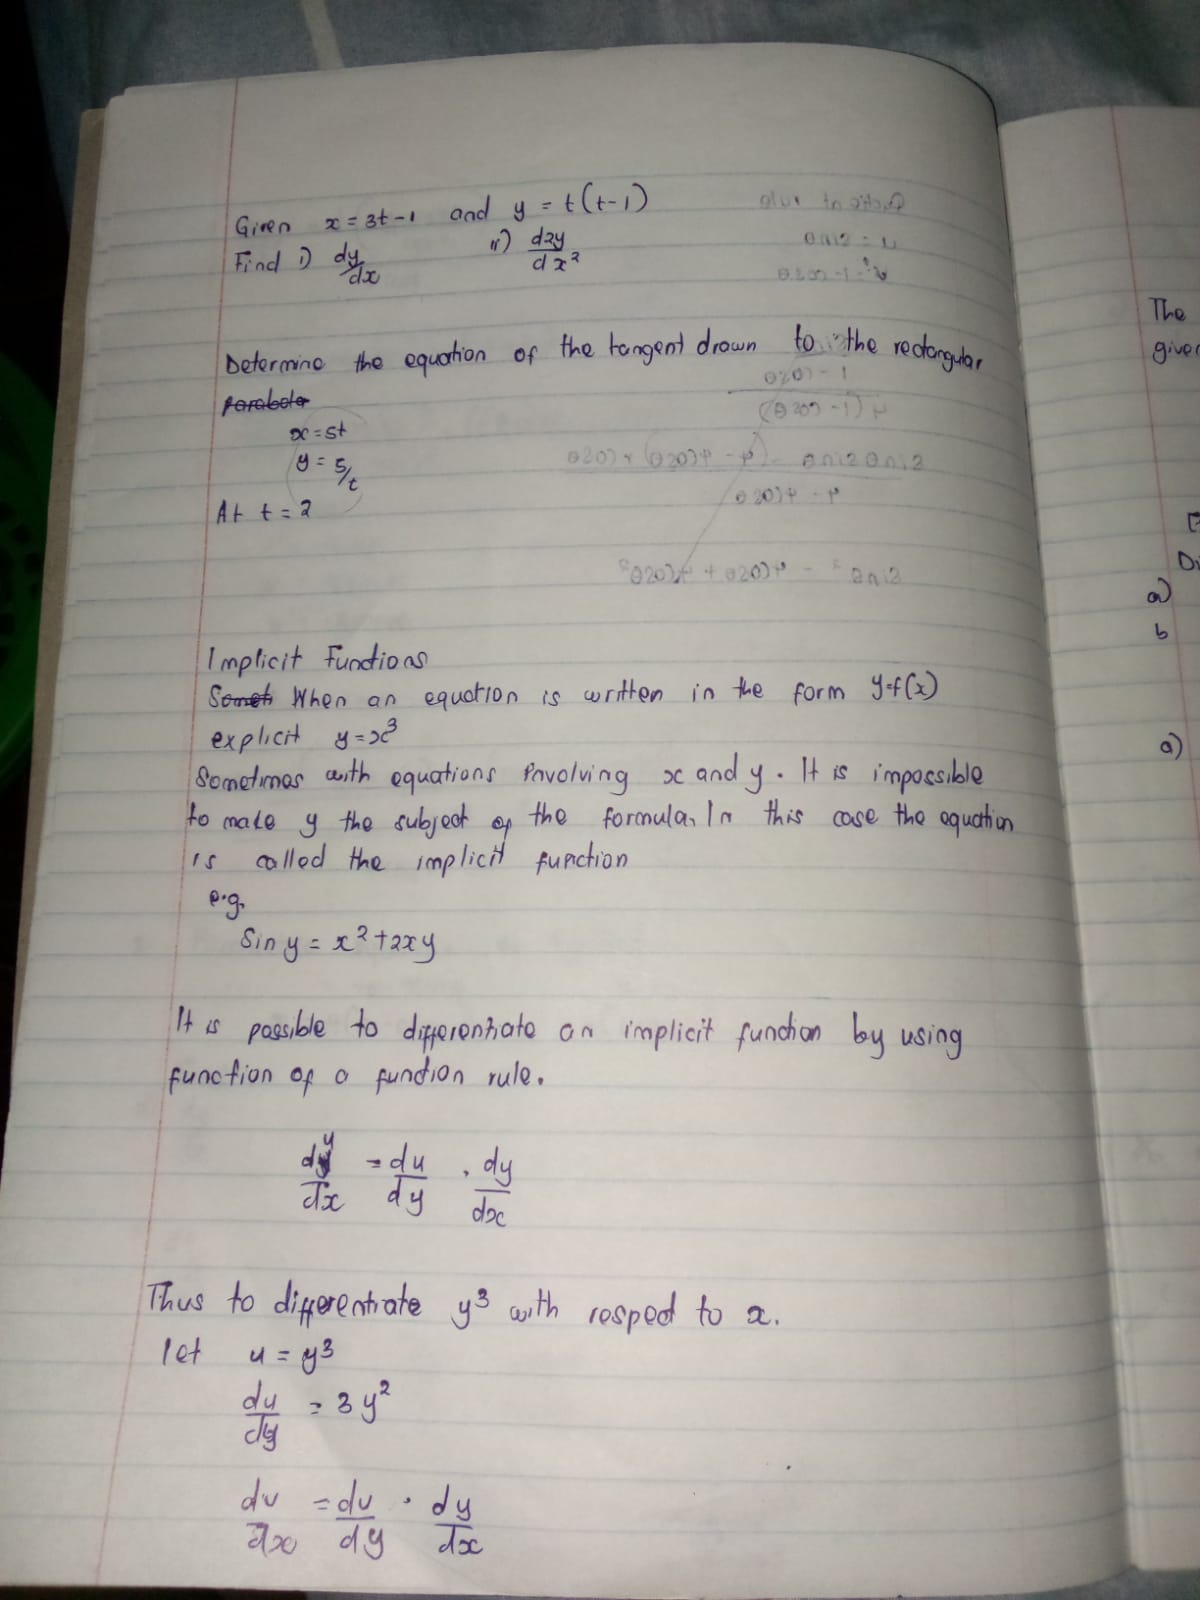 Given x = 3t-1 and y = t(t-1)
Find i) dy/dx ii) d2y/dx²
Determine the equation of the tangent drawn to the rectangular
parabola
x = 5t
y = 5/t
At t = 2
Implicit Functions
Somet When an equation is written in the form y=f(x)
explicit y=x³
Sometimes with equations involving x and y. It is impossible
to make y the subject of the formula. In this case the equation
is called the implicit function
e.g.
Sin y = x² + 2xy
It is possible to differentiate an implicit function by using
function of a function rule.
dy/dx = du/dy . dy/dx
Thus to differentiate y³ with respect to x.
let u = y³
du/dy = 3y²
du/dx = du/dy . dy/dx
The
given
Di
a)
b
a)